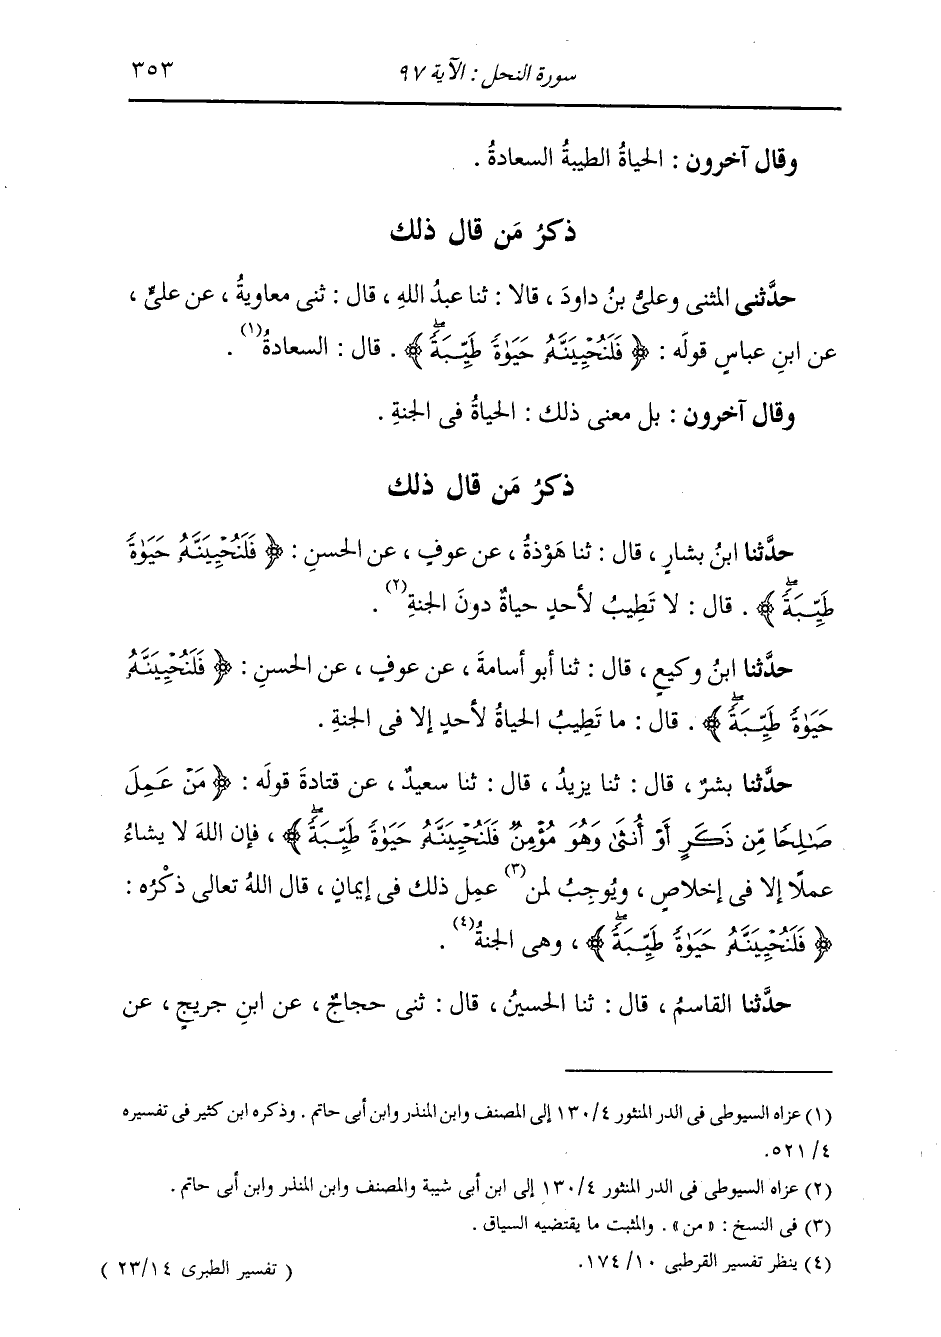 سورة النحل : الآية ٩٧ ٣٥٣
وقال آخرون : الحياةُ الطيبةُ السعادةُ .
ذكرُ مَن قال ذلك
حدَّثني المثنى وعليُّ بنُ داودَ ، قالا : ثنا عبدُ اللهِ ، قال : ثنى معاويةُ ، عن عليٍّ ،
عن ابنِ عباسٍ قولَه : ﴿ فَلَنُحْيِيَنَّهُ حَيَوٰةً طَيِّبَةً ۖ ﴾ . قال : السعادةُ(١) .
وقال آخرون : بل معنى ذلك : الحياةُ فى الجنةِ .
ذكرُ مَن قال ذلك
حدَّثنا ابنُ بشارٍ ، قال : ثنا هَوْذةُ ، عن عوفٍ ، عن الحسنِ : ﴿ فَلَنُحْيِيَنَّهُ حَيَوٰةً
طَيِّبَةً ۖ ﴾ . قال : لا تَطِيبُ لأحدٍ حياةٌ دونَ الجنةِ(٢) .
حدَّثنا ابنُ وكيعٍ ، قال : ثنا أبو أسامةَ ، عن عوفٍ ، عن الحسنِ : ﴿ فَلَنُحْيِيَنَّهُ
حَيَوٰةً طَيِّبَةً ۖ ﴾ . قال : ما تَطِيبُ الحياةُ لأحدٍ إلا فى الجنةِ .
حدَّثنا بشرٌ ، قال : ثنا يزيدُ ، قال : ثنا سعيدٌ ، عن قتادةَ قولَه : ﴿ مَنْ عَمِلَ
صَٰلِحًا مِّن ذَكَرٍ أَوْ أُنثَىٰ وَهُوَ مُؤْمِنٌ فَلَنُحْيِيَنَّهُ حَيَوٰةً طَيِّبَةً ۖ ﴾ ، فإن اللهَ لا يشاءُ
عملًا إلا فى إخلاصٍ ، ويُوجِبُ لمن(٣) عمِل ذلك فى إيمانٍ ، قال اللهُ تعالى ذكْرُه :
﴿ فَلَنُحْيِيَنَّهُ حَيَوٰةً طَيِّبَةً ۖ ﴾ ، وهى الجنةُ(٤) .
حدَّثنا القاسمُ ، قال : ثنا الحسينُ ، قال : ثنى حجاجٌ ، عن ابنِ جريجٍ ، عن
(١) عزاه السيوطى فى الدر المنثور ١٣٠/٤ إلى المصنف وابن المنذر وابن أبى حاتم . وذكره ابن كثير فى تفسيره
٥٢١/٤.
(٢) عزاه السيوطى فى الدر المنثور ١٣٠/٤ إلى ابن أبى شيبة والمصنف وابن المنذر وابن أبى حاتم .
(٣) فى النسخ : « من » . والمثبت ما يقتضيه السياق .
(٤) ينظر تفسير القرطبى ١٧٤/١٠.
( تفسير الطبرى ٢٣/١٤ )